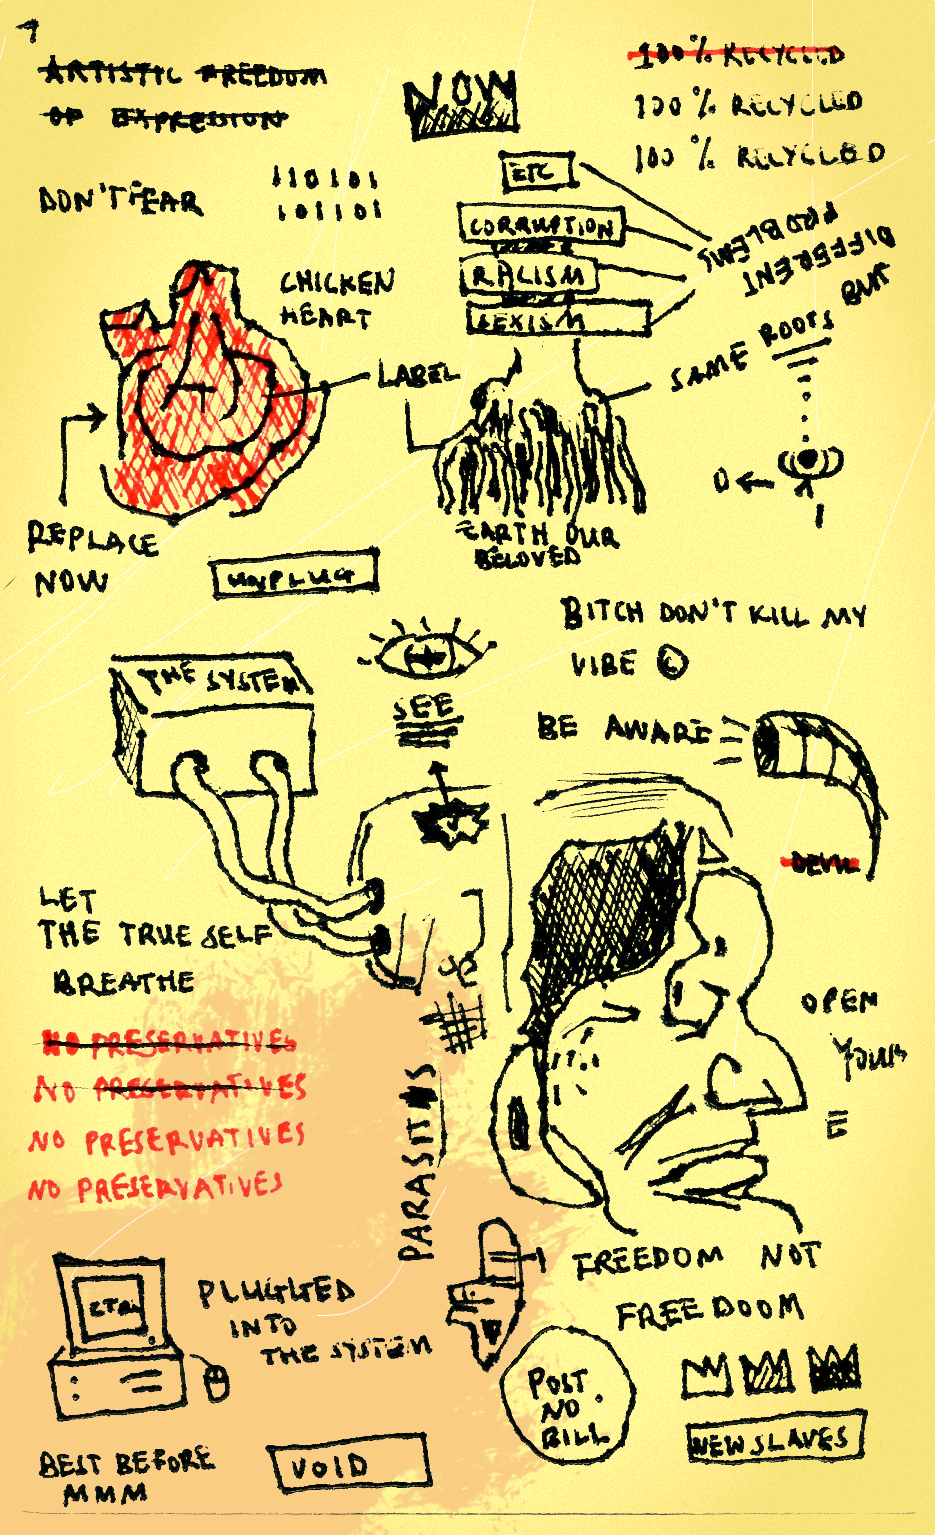 ARTISTIC FREEDOM
OF EXPRESSION
NOW
100% RECYCLED
100% RECYCLED
100% RECYCLED
DON'T FEAR
110101
101101
ETC
CORRUPTION
RACISM
SEXISM
DIFFERENT
PROBLEMS
BUT
SAME ROOTS
CHICKEN
HEART
LABEL
REPLACE
NOW
EARTH OUR
BELOVED
0
1
UNPLUG
BITCH DON'T KILL MY
VIBE ©
THE SYSTEM
SEE
BE AWARE
DEVIL
LET
THE TRUE SELF
BREATHE
OPEN
YOUR
E
NO PRESERVATIVES
NO PRESERVATIVES
NO PRESERVATIVES
NO PRESERVATIVES
CTRL
PLUGGED
INTO
THE SYSTEM
FREEDOM NOT
FREE DOOM
POST
NO
BILL
NEW SLAVES
BEST BEFORE
MMM
VOID